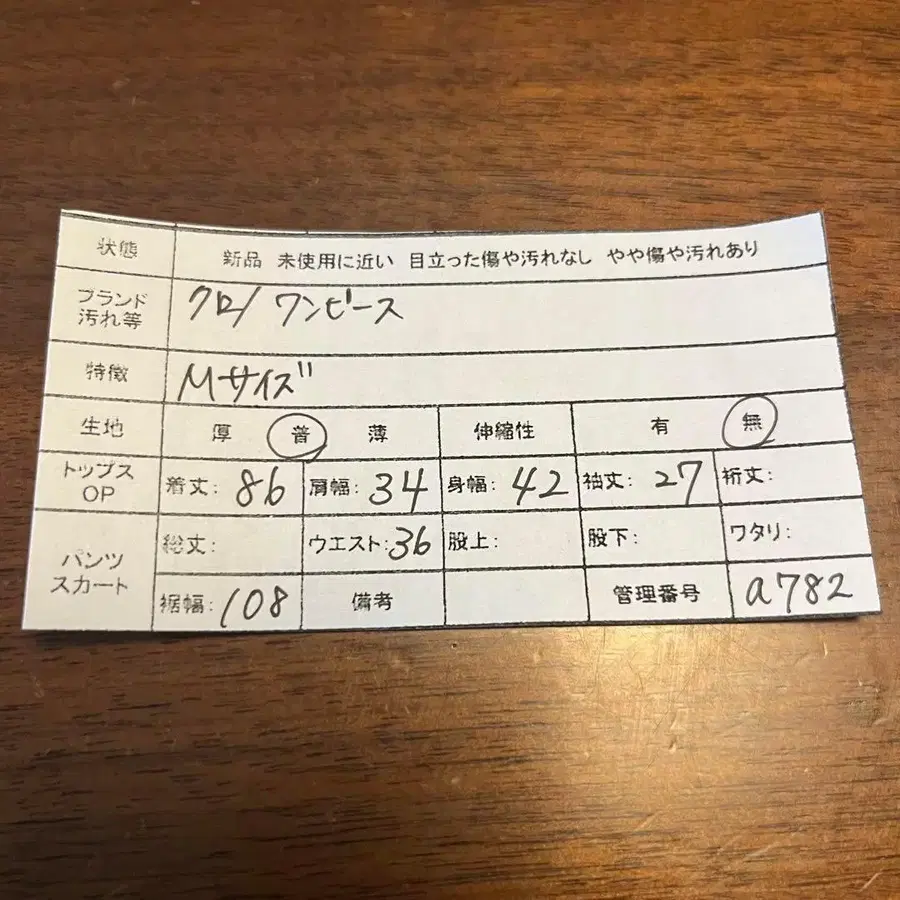 状態 新品 未使用に近い 目立った傷や汚れなし やや傷や汚れあり
ブランド
汚れ等
クロ/ワンピース
特徴 Mサイズ
生地 厚 普 薄 伸縮性 有 無
トップス
OP
着丈: 86 肩幅: 34 身幅: 42 袖丈: 27 裄丈:
パンツ
スカート
総丈: ウエスト: 36 股上: 股下: ワタリ:
裾幅: 108 備考 管理番号 a782